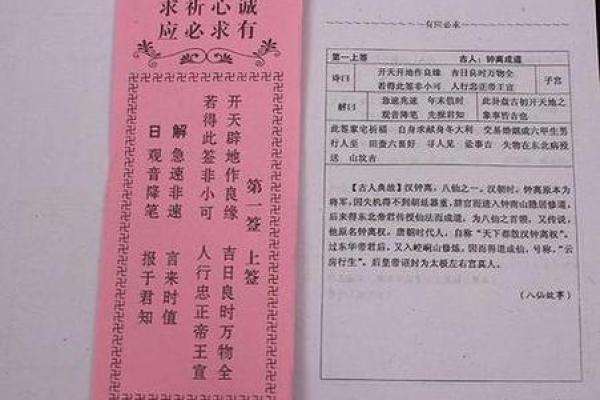 诚心祈求
有求必应
第一签 上签
开天辟地作良缘 吉日良时万物全
若得此签非小可 人行忠正帝王宣
解 急速非速 言来时值
日 观音降笔 报于君知
有应必求
第一上签 古人：钟离成道
诗曰 开天开地作良缘 吉日良时万物全 子宫
若得此签非小可 人行忠正帝王宣
解曰 急速兆速 年末值时 此卦盘古初开天地之
观音降笔 先报君知 象事皆吉也
此签家宅祈福 自身求献身冬大利 交易婚姻成六甲生男
行人至 田蚕六畜好 寻人见 讼事吉 失物在东北病授
送 山坟吉
【古人典故】汉钟离，八仙之一，汉朝时，钟离原本为
将军，因失机得不到朝廷器重，辞官而进入钟南山隐居修道，
后来得东北帝君传授仙法而成道，为八仙之首领，又传说，
他原名钟离权，唐朝时代人，自称“天下都散汉钟离权”。
过东华帝君后，又入崆峒山修炼，因而得道成仙，号称，“云
房行生”。后皇帝诏封为太极左右宫真人。
（八仙故事）